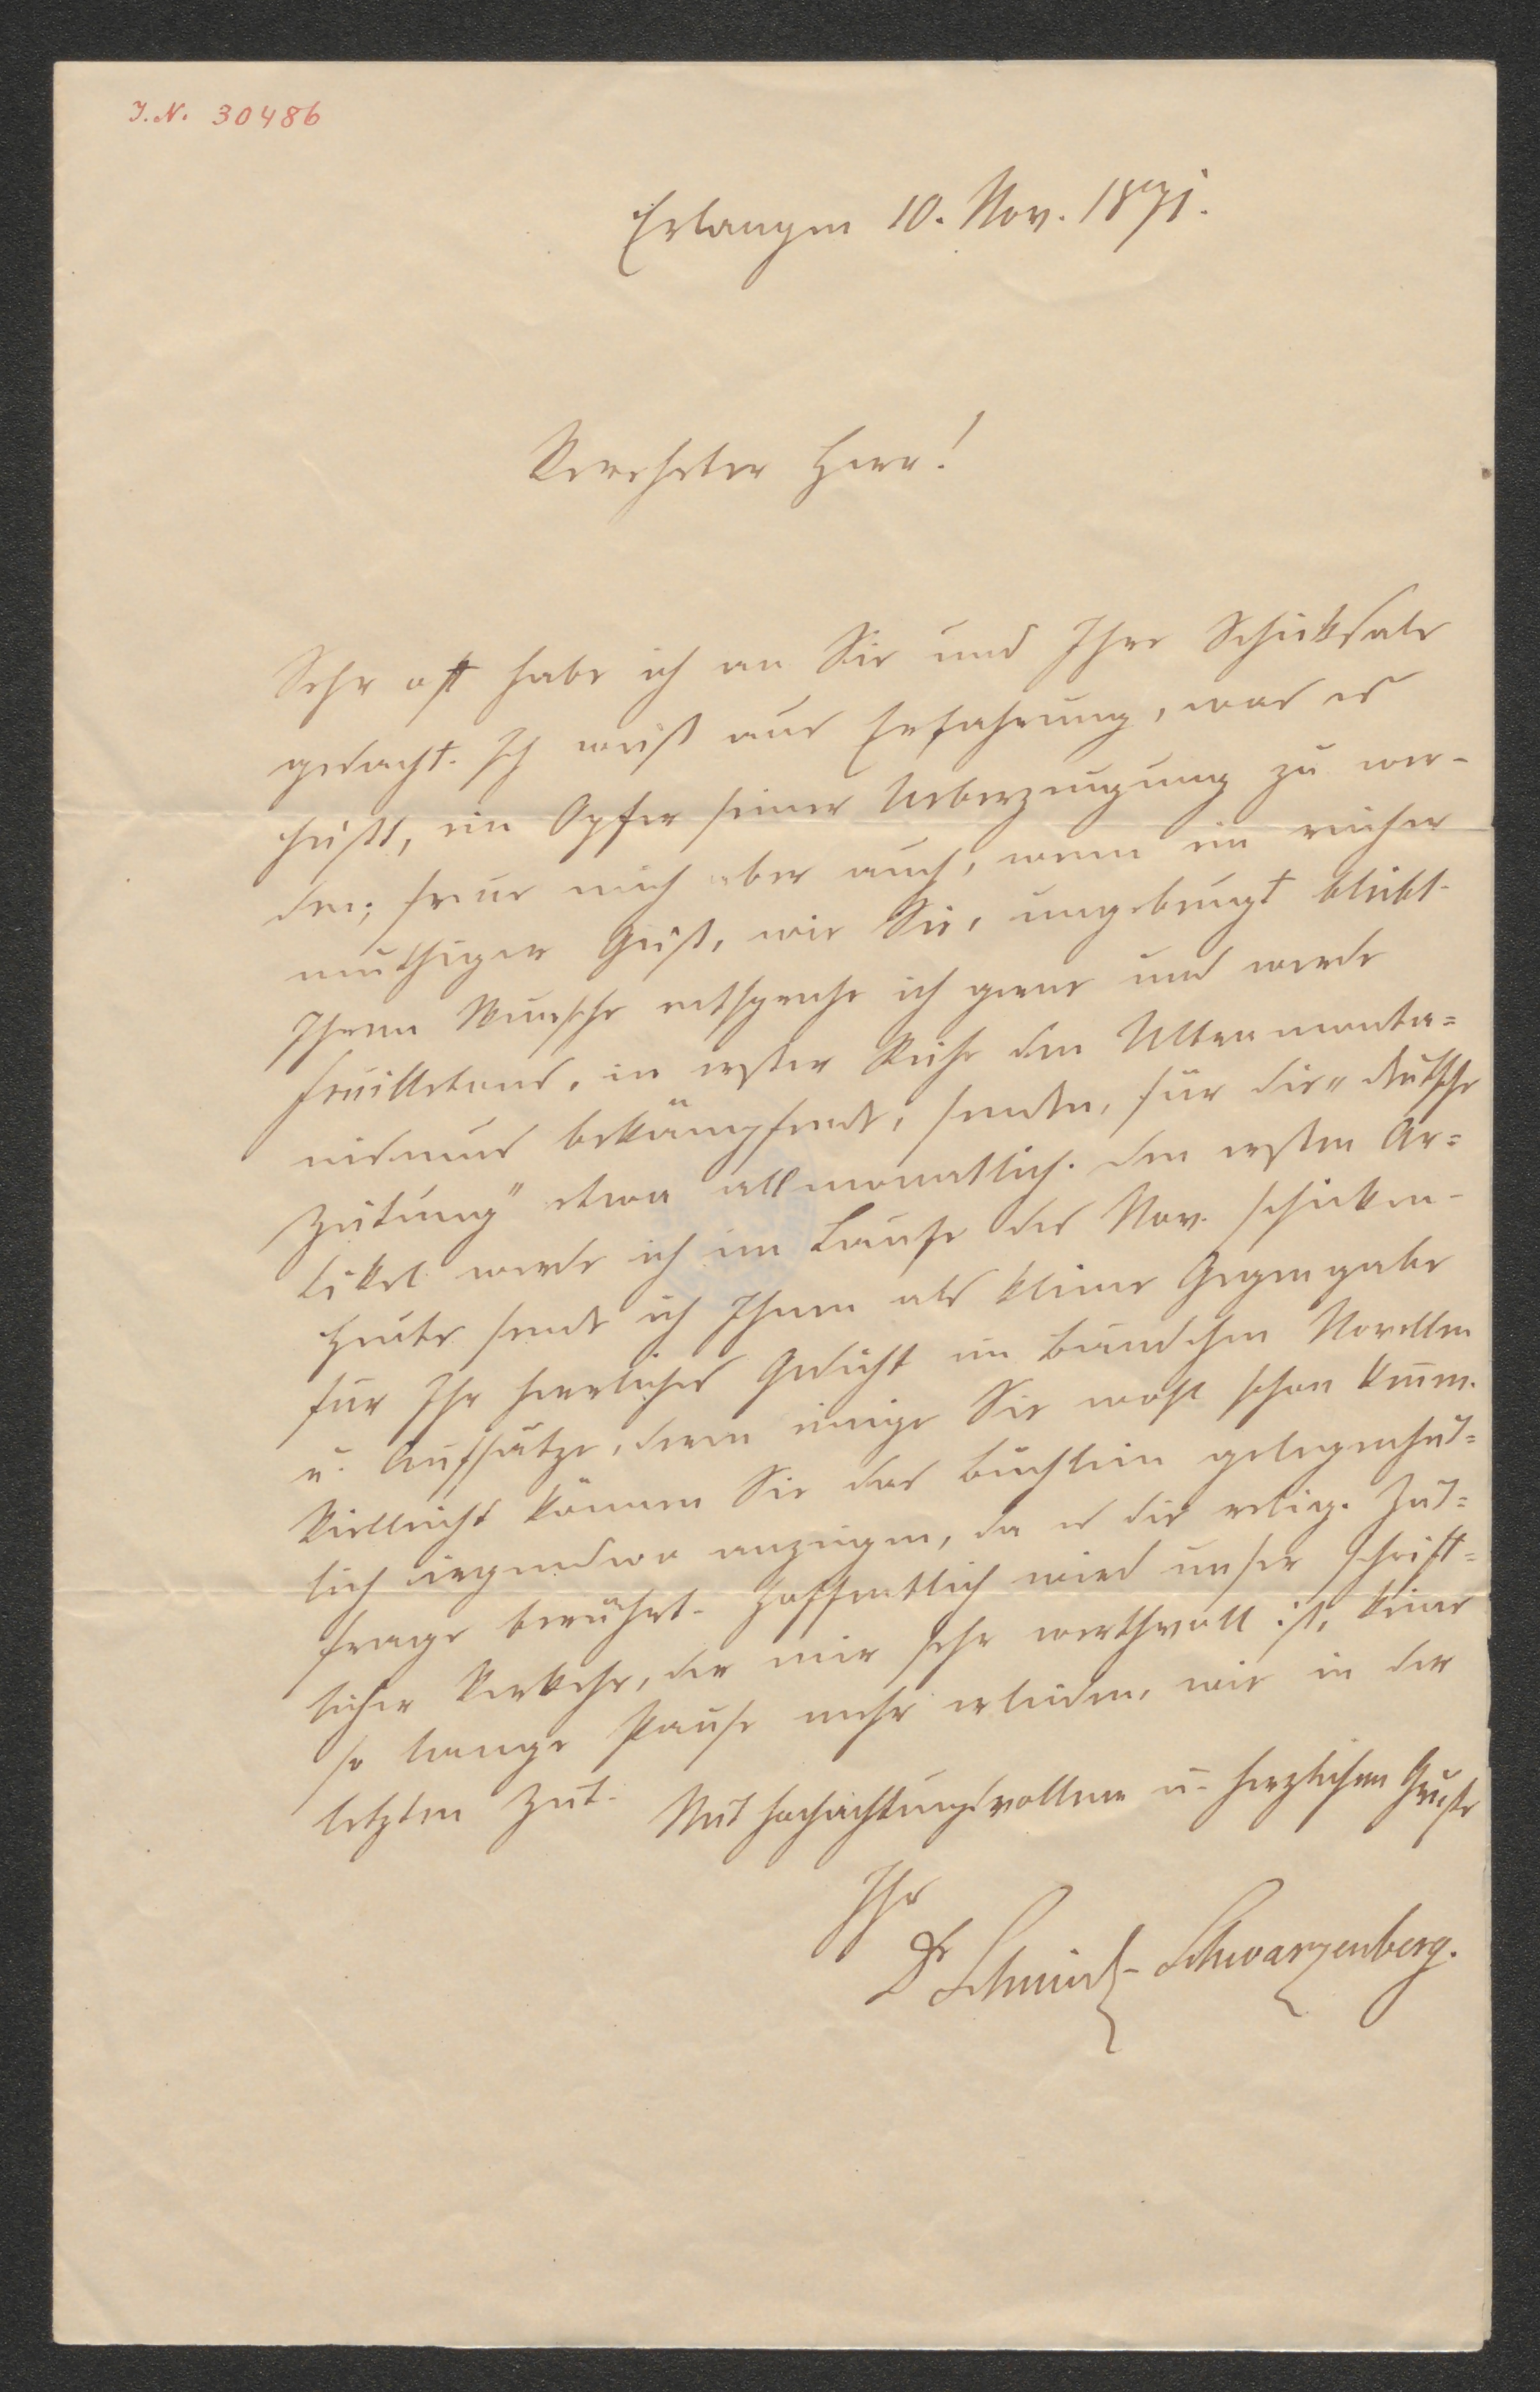 I.N. 30486
Erlangen 10. Nov. 1871.
Verehrter Herr!
Sehr oft habe ich an Sie und Ihre Schicksale
gedacht. Ich weiß aus Erfahrung, was es
heißt, ein Opfer seiner Ueberzeugung zu wer-
den; freue mich aber auch, wenn ein reicher
muthiger Geist, wie Sie, ungebeugt bleibt.
Ihrem Wunsche entspreche ich gerne und werde
Feuilletons, in erster Reihe den Ultramonta=
nismus bekämpfend, senden, für die „deutsche
Zeitung" etwa allmonatlich. Den ersten Ar=
tikel werde ich im Laufe des Nov. schicken.
Heute sende ich Ihnen als kleine Gegengabe
für Ihr herrliches Gedicht ein Bändchen Novellen
u. Aufsätze, deren einige Sie wohl schon kennen.
Vielleicht können Sie das Büchlein gelegenheit=
lich irgendwo anzeigen, da es die relig. Zeit=
frage berührt. Hoffentlich wird unser schrift=
licher Verkehr, der mir sehr werthvoll ist, keine
so lange Pause mehr erleiden, wie in der
letzten Zeit. Mit hochachtungsvollem u. herzlichem Gruße
Ihr
Dr Schmid-Schwarzenberg.